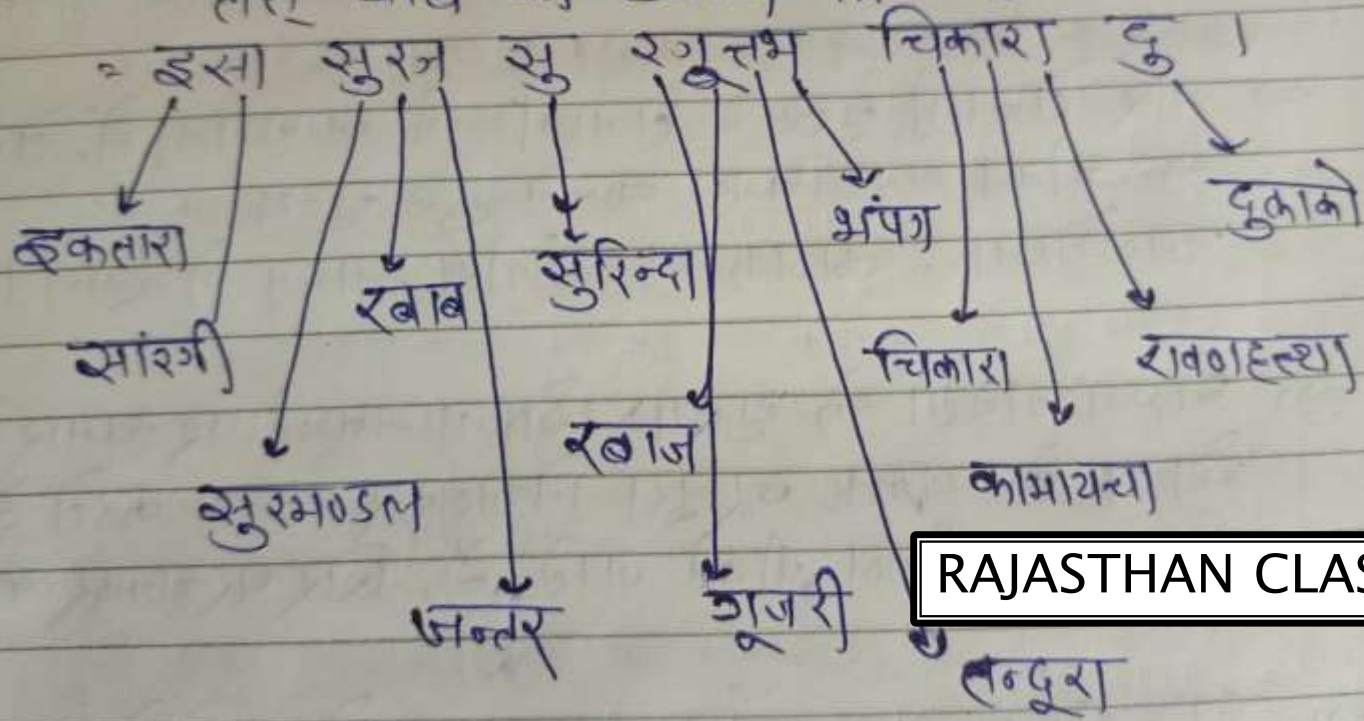 = इसा सुरज सु रगूतभ चिकारा दु ।
इकतारा
सांरगी
सुरमण्डल
रबाब
जन्तर
सुरिन्दा
रबाज
गूजरी
तन्दूरा
भंपग
चिकारा
कामायचा
रावणहत्था
दुकाको
RAJASTHAN CLAS